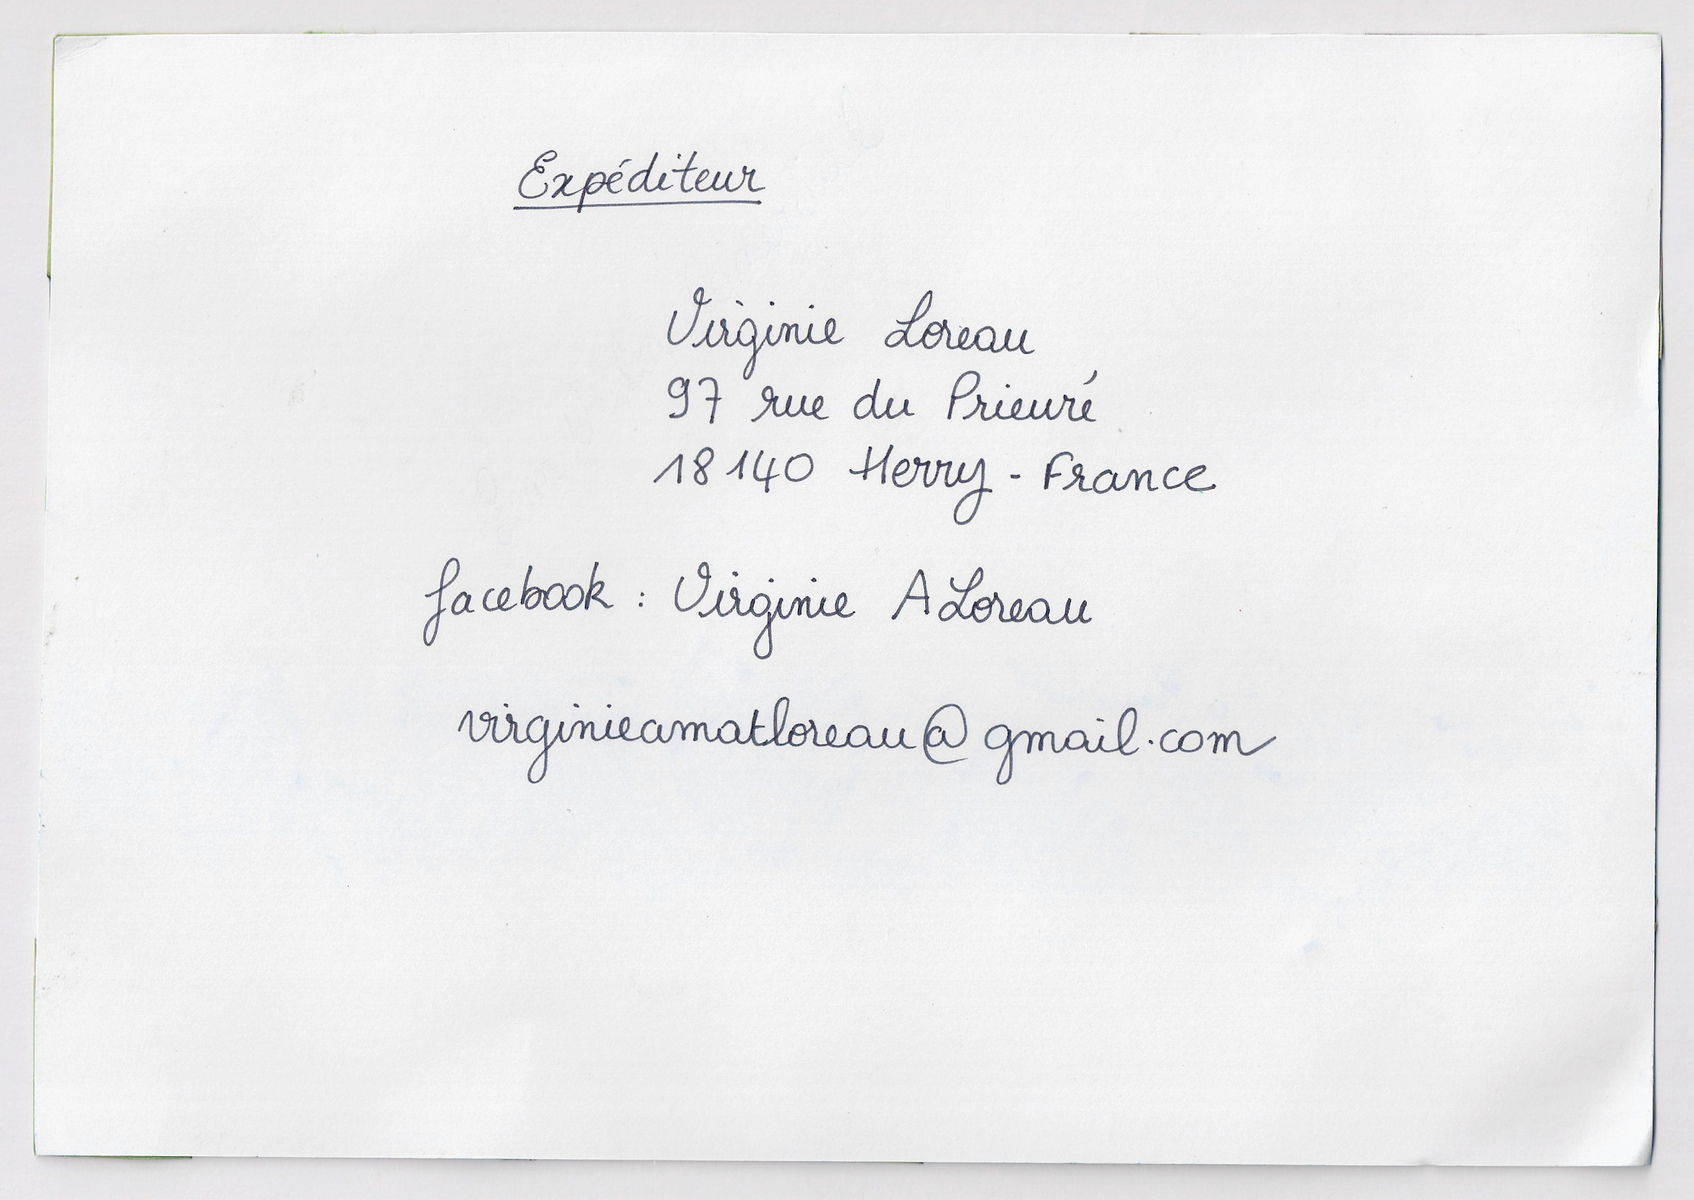 Expéditeur
Virginie Loreau
97 rue du Prieuré
18140 Herry - France
facebook : Virginie ALoreau
virginieamatloreau@gmail.com